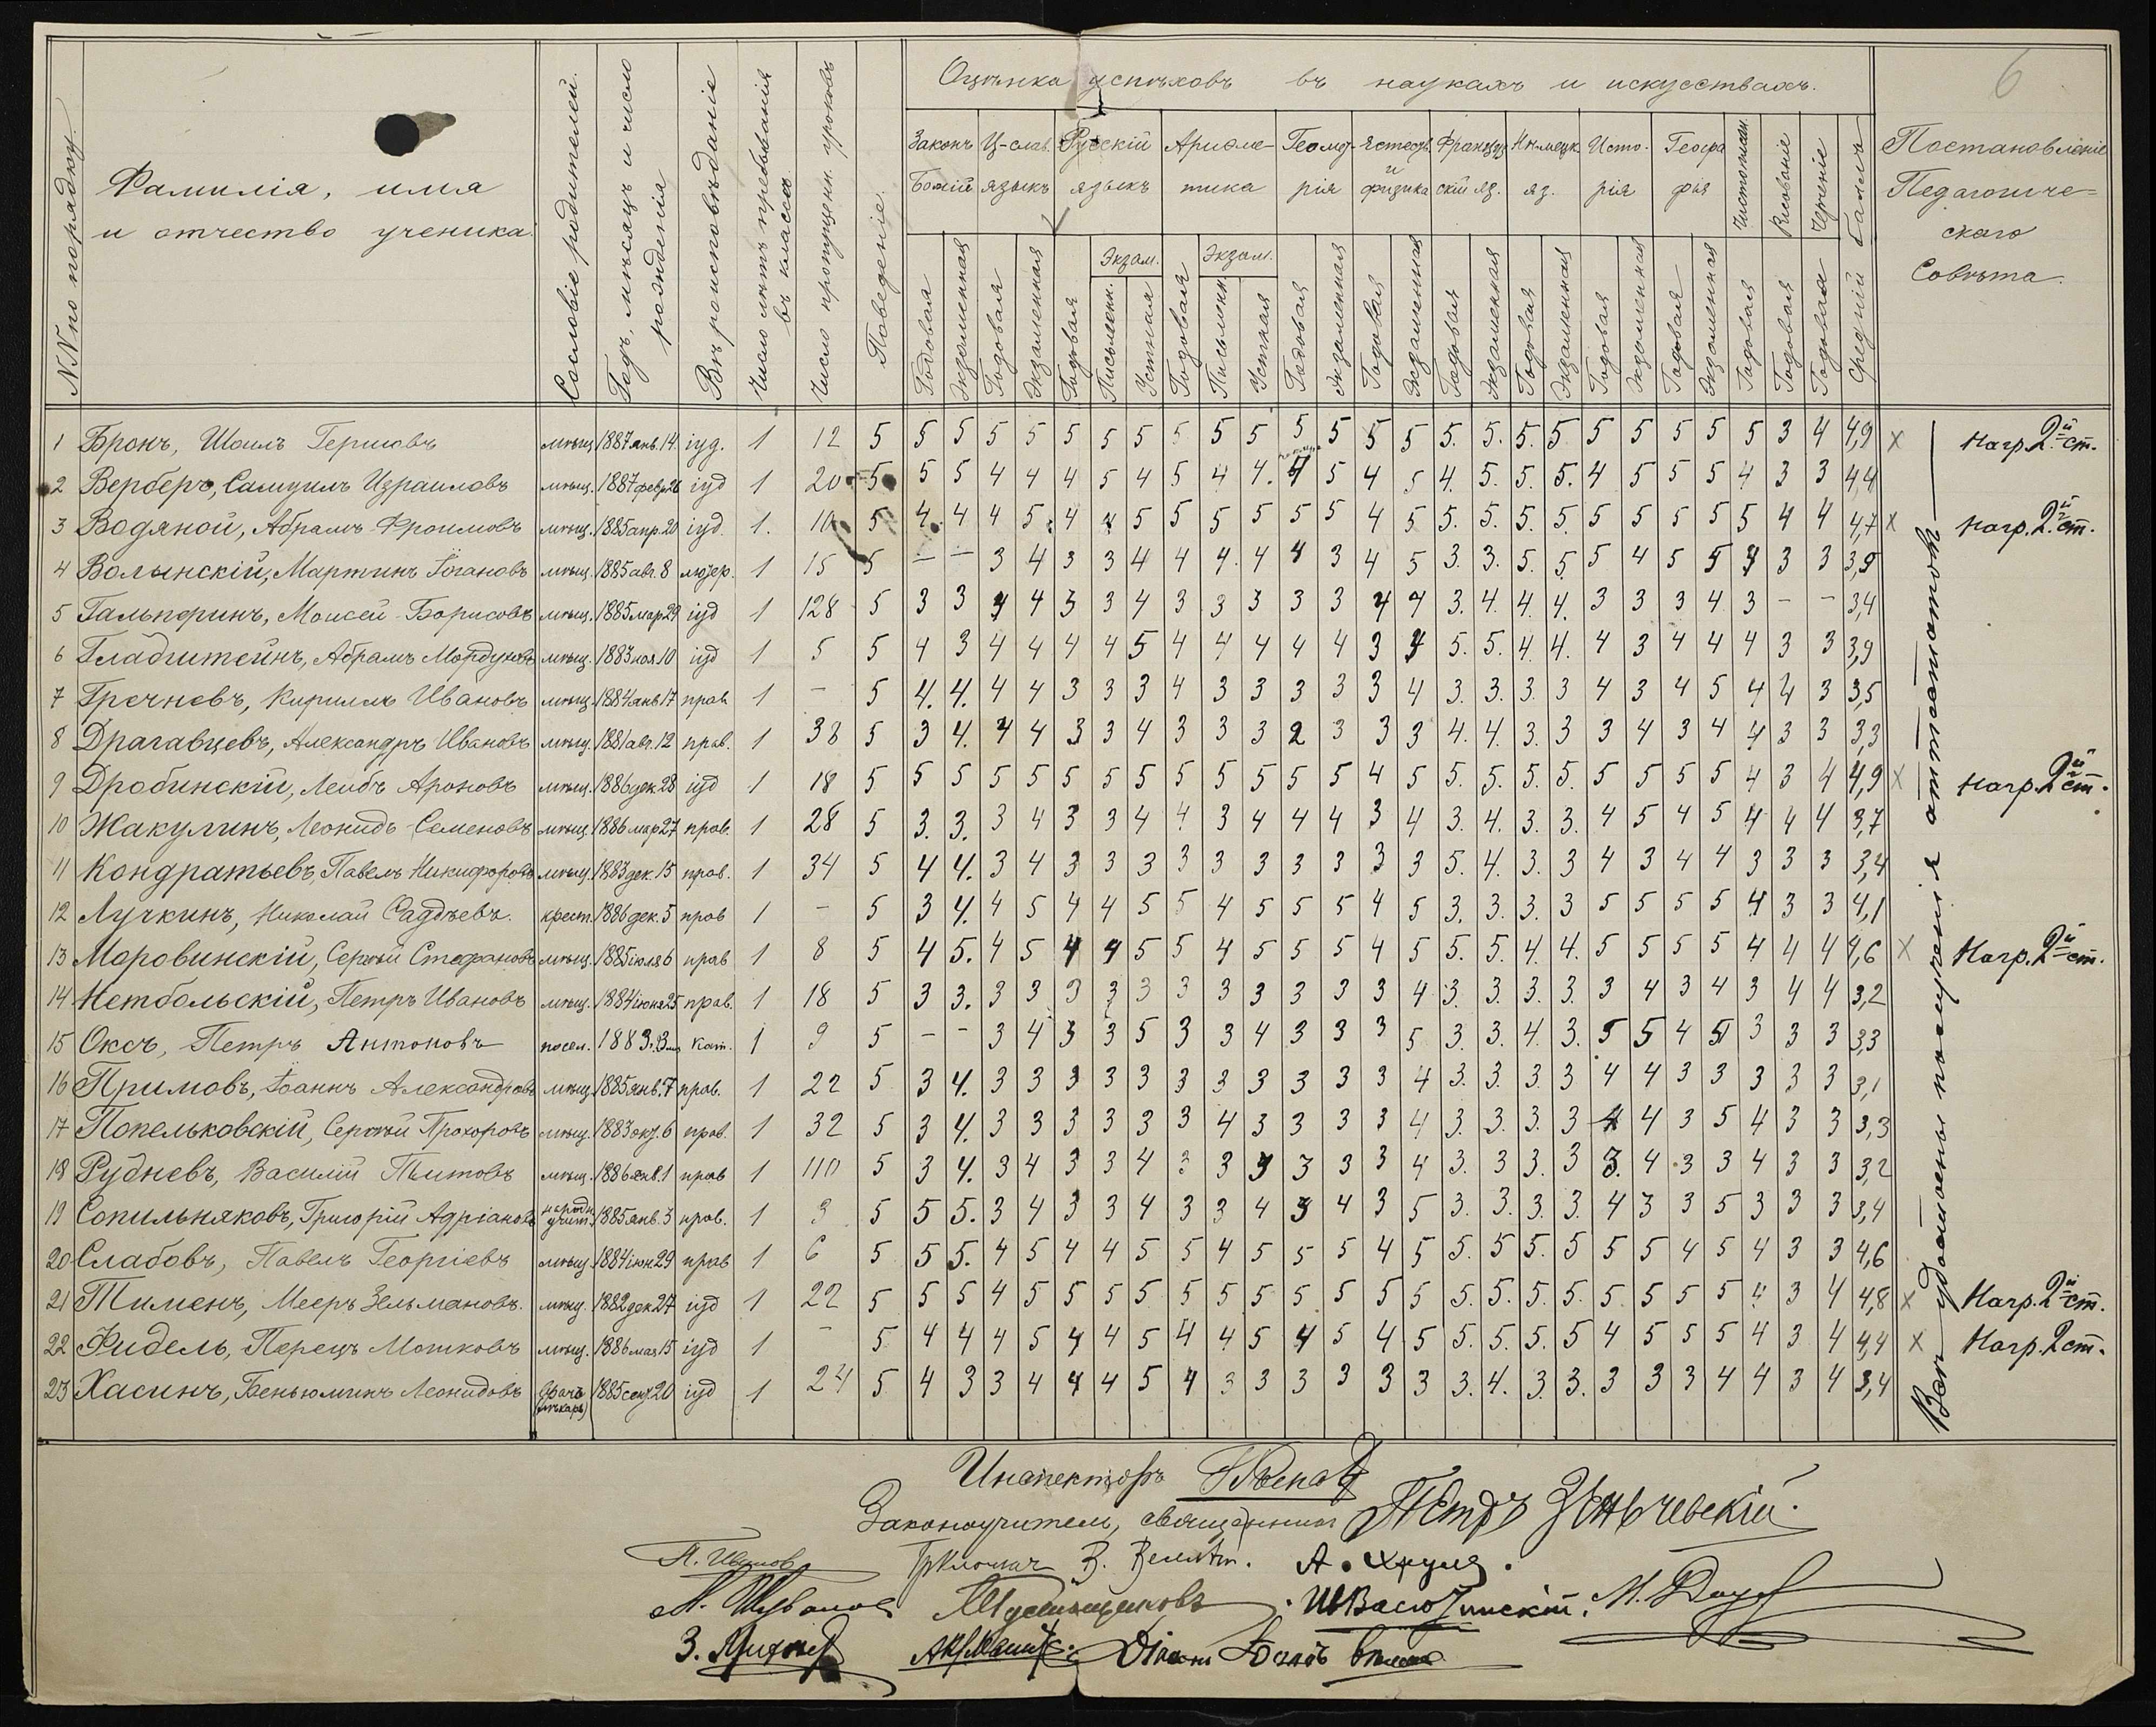 6
Оцѣнка успѣховъ въ наукахъ и искусствахъ.
NN по порядку.
Фамилія, имя
и отчество ученика.
Сословіе родителей.
Годъ, мѣсяцъ и число рожденія
Вѣроисповѣданіе
Число лѣтъ пребыванія въ классѣ
Число пропущен. уроковъ
Поведеніе.
Законъ Божій
Ц-слав. языкъ
Русскій языкъ
Ариѳметика
Геометрія
Естеств. и физика
Французскій яз.
Нѣмецк. яз.
Исторія
Географія
Чистописан.
Рисованіе
Черченіе
Средній баллъ
Постановленіе
Педагогиче=
скаго
Совѣта.
Экзам. Экзам.
Годовая Экзаменная Годовая Экзаменная Годовая Письменн. Устная Годовая Письменн. Устная Годовая Экзаменная Годовая Экзаменная Годовая Экзаменная Годовая Экзаменная Годовая Экзаменная Годовая Экзаменная Годовая Годовая Годовая
1 Бронъ, Шоилъ Гершовъ мѣщ. 1887 янв. 14. іуд. 1 12 5 5 5 5 5 5 5 5 5 5 5 5 5 5 5 5. 5. 5. 5 5 5 5 5 5 3 4 4,9 х Нагр. 2й ст.
2 Верберъ, Самуилъ Израиловъ мѣщ. 1887 февр 26 іуд 1 20 5 5 5 4 4 4 5 4 5 4 4. 4 5 4 5 4. 5. 5. 5. 4 5 5 5 4 3 3 4,4
3 Водяной, Абрамъ Фроимовъ мѣщ. 1885 апр. 20 іуд. 1. 10 5 4. 4 4 5 4 4 5 5 5 5 5 5 4 5 5. 5. 5. 5 5 5 5 5 5 4 4 4,7 х Нагр. 2й ст.
4 Волынскій, Мартинъ Іогановъ мѣщ. 1885 авг. 8 лютер. 1 15 5 – – 3 4 3 3 4 4 4. 4 4 3 4 5 3. 3. 5. 5. 5 4 5 5 3 3 3 3,9
5 Гальперинъ, Моисей Борисовъ мѣщ. 1885 мар 29 іуд 1 128 5 3 3 4 4 3 3 4 3 3 3 3 3 4 4 3. 4. 4. 4. 3 3 3 4 3 – – 3,4
6 Гладштейнъ, Абрамъ Мордуховъ мѣщ. 1883 ноя 10 іуд 1 5 5 4 3 4 4 4 4 5 4 4 4 4 4 3 4 5. 5. 4. 4. 4 3 4 4 4 3 3 3,9
7 Гречневъ, Кириллъ Ивановъ мѣщ. 1884 янв 17 прав. 1 – 5 4. 4. 4 4 3 3 3 4 3 3 3 3 3 4 3. 3. 3. 3 4 3 4 5 4 4 3 3,5
8 Драгавцевъ, Александръ Ивановъ мѣщ. 1881 авг. 12 прав. 1 38 5 3 4. 4 4 3 3 4 3 3 3 2 3 3 3 4. 4. 3. 3 3 4 3 4 4 3 3 3,3
9 Дробинскій, Лейбъ Ароновъ мѣщ. 1886 дек 28 іуд 1 18 5 5 5 5 5 5 5 5 5 5 5 5 5 4 5 5. 5. 5. 5. 5 5 5 5 4 3 4 4,9 х Нагр. 2й ст.
10 Жакулинъ, Леонидъ Семеновъ мѣщ. 1886 мар 27 прав. 1 28 5 3. 3. 3 4 3 3 4 4 3 4 4 4 3 4 3. 4. 3. 3. 4 5 4 5 4 4 4 3,7
11 Кондратьевъ, Павелъ Никифоровъ мѣщ. 1883 дек. 15 прав. 1 34 5 4 4. 3 4 3 3 3 3 3 3 3 3 3 3 5. 4. 3. 3 4 3 4 4 3 3 3 3,4
12 Лучкинъ, Николай Фаддѣевъ. крест. 1886 дек. 5 прав 1 – 5 3 4. 4 5 4 4 5 5 4 5 5 5 4 5 3. 3. 3. 3 5 5 5 5 4 3 3 4,1
13 Моровинскій, Сергѣй Стефановъ мѣщ. 1885 іюля 6 прав 1 8 5 4 5. 4 5 4 4 5 5 4 5 5 5 4 5 5. 5. 4. 4. 5 5 5 5 4 4 4 4,6 х Нагр. 2й ст.
14 Нетбольскій, Петръ Ивановъ мѣщ. 1884 іюня 25 прав. 1 18 5 3 3. 3 3 3 3 3 3 3 3 3 3 3 4 3. 3. 3. 3. 3 4 3 4 3 4 4 3,2
15 Оксъ, Петръ Антоновъ посел. 1883 кат. 1 9 5 – – 3 4 3 3 5 3 3 4 3 3 3 5 3. 3. 4. 3. 5 5 4 5 3 3 3 3,3
16 Примовъ, Іоаннъ Александровъ мѣщ. 1885 янв. 7 прав. 1 22 5 3 4. 3 3 3 3 3 3 3 3 3 3 3 4 3. 3. 3. 3 4 4 3 3 3 3 3 3,1
17 Попельковскій, Сергѣй Прохоровъ мѣщ. 1883 окт. 6 прав. 1 32 5 3 4. 3 3 3 3 3 3 4 3 3 3 3 4 3. 3. 3. 3 4 4 3 5 4 3 3 3,3
18 Рудневъ, Василій Титовъ мѣщ. 1886 янв. 1 прав 1 110 5 3 4. 3 4 3 3 4 3 3 3 3 3 3 4 3. 3 3. 3 3. 4 3 3 4 3 3 3,2
19 Сопильняковъ, Григорій Адріановъ народн. учит. 1885 янв. 3 прав. 1 9 5 5 5. 3 4 3 3 4 3 3 4 3 4 3 5 3. 3. 3. 3. 4 3 3 5 3 3 3 3,4
20 Слабовъ, Павелъ Георгіевъ мѣщ. 1884 іюн 29 прав 1 6 5 5 5. 4 5 4 4 5 5 4 5 5 5 4 5 5. 5 5. 5 5 5 4 5 4 3 3 4,6
21 Тименъ, Мееръ Зельмановъ. мѣщ. 1882 дек 27 іуд 1 22 5 5 5 4 5 5 5 5 5 5 5 5 5 5 5 5. 5. 5. 5. 5 5 5 5 4 3 4 4,8 х Нагр. 2й ст.
22 Фидель, Перецъ Мошковъ мѣщ. 1886 мая 15 іуд 1 – 5 4 4 4 5 4 4 5 4 4 5 4 5 4 5 5. 5. 5. 5 4 5 5 5 4 3 4 4,4 х Нагр. 2 ст.
23 Хасинъ, Беньюминъ Леонидовъ Врачъ (лѣкарь) 1885 сент 20 іуд 1 24 5 4 3 3 4 4 4 5 4 3 3 3 3 3 3 3. 4. 3. 3. 3 3 3 4 4 3 4 3,4
Всѣ удостоены полученія аттестатовъ
Инспекторъ
Законоучитель, священникъ Петръ Зеньчевскій.